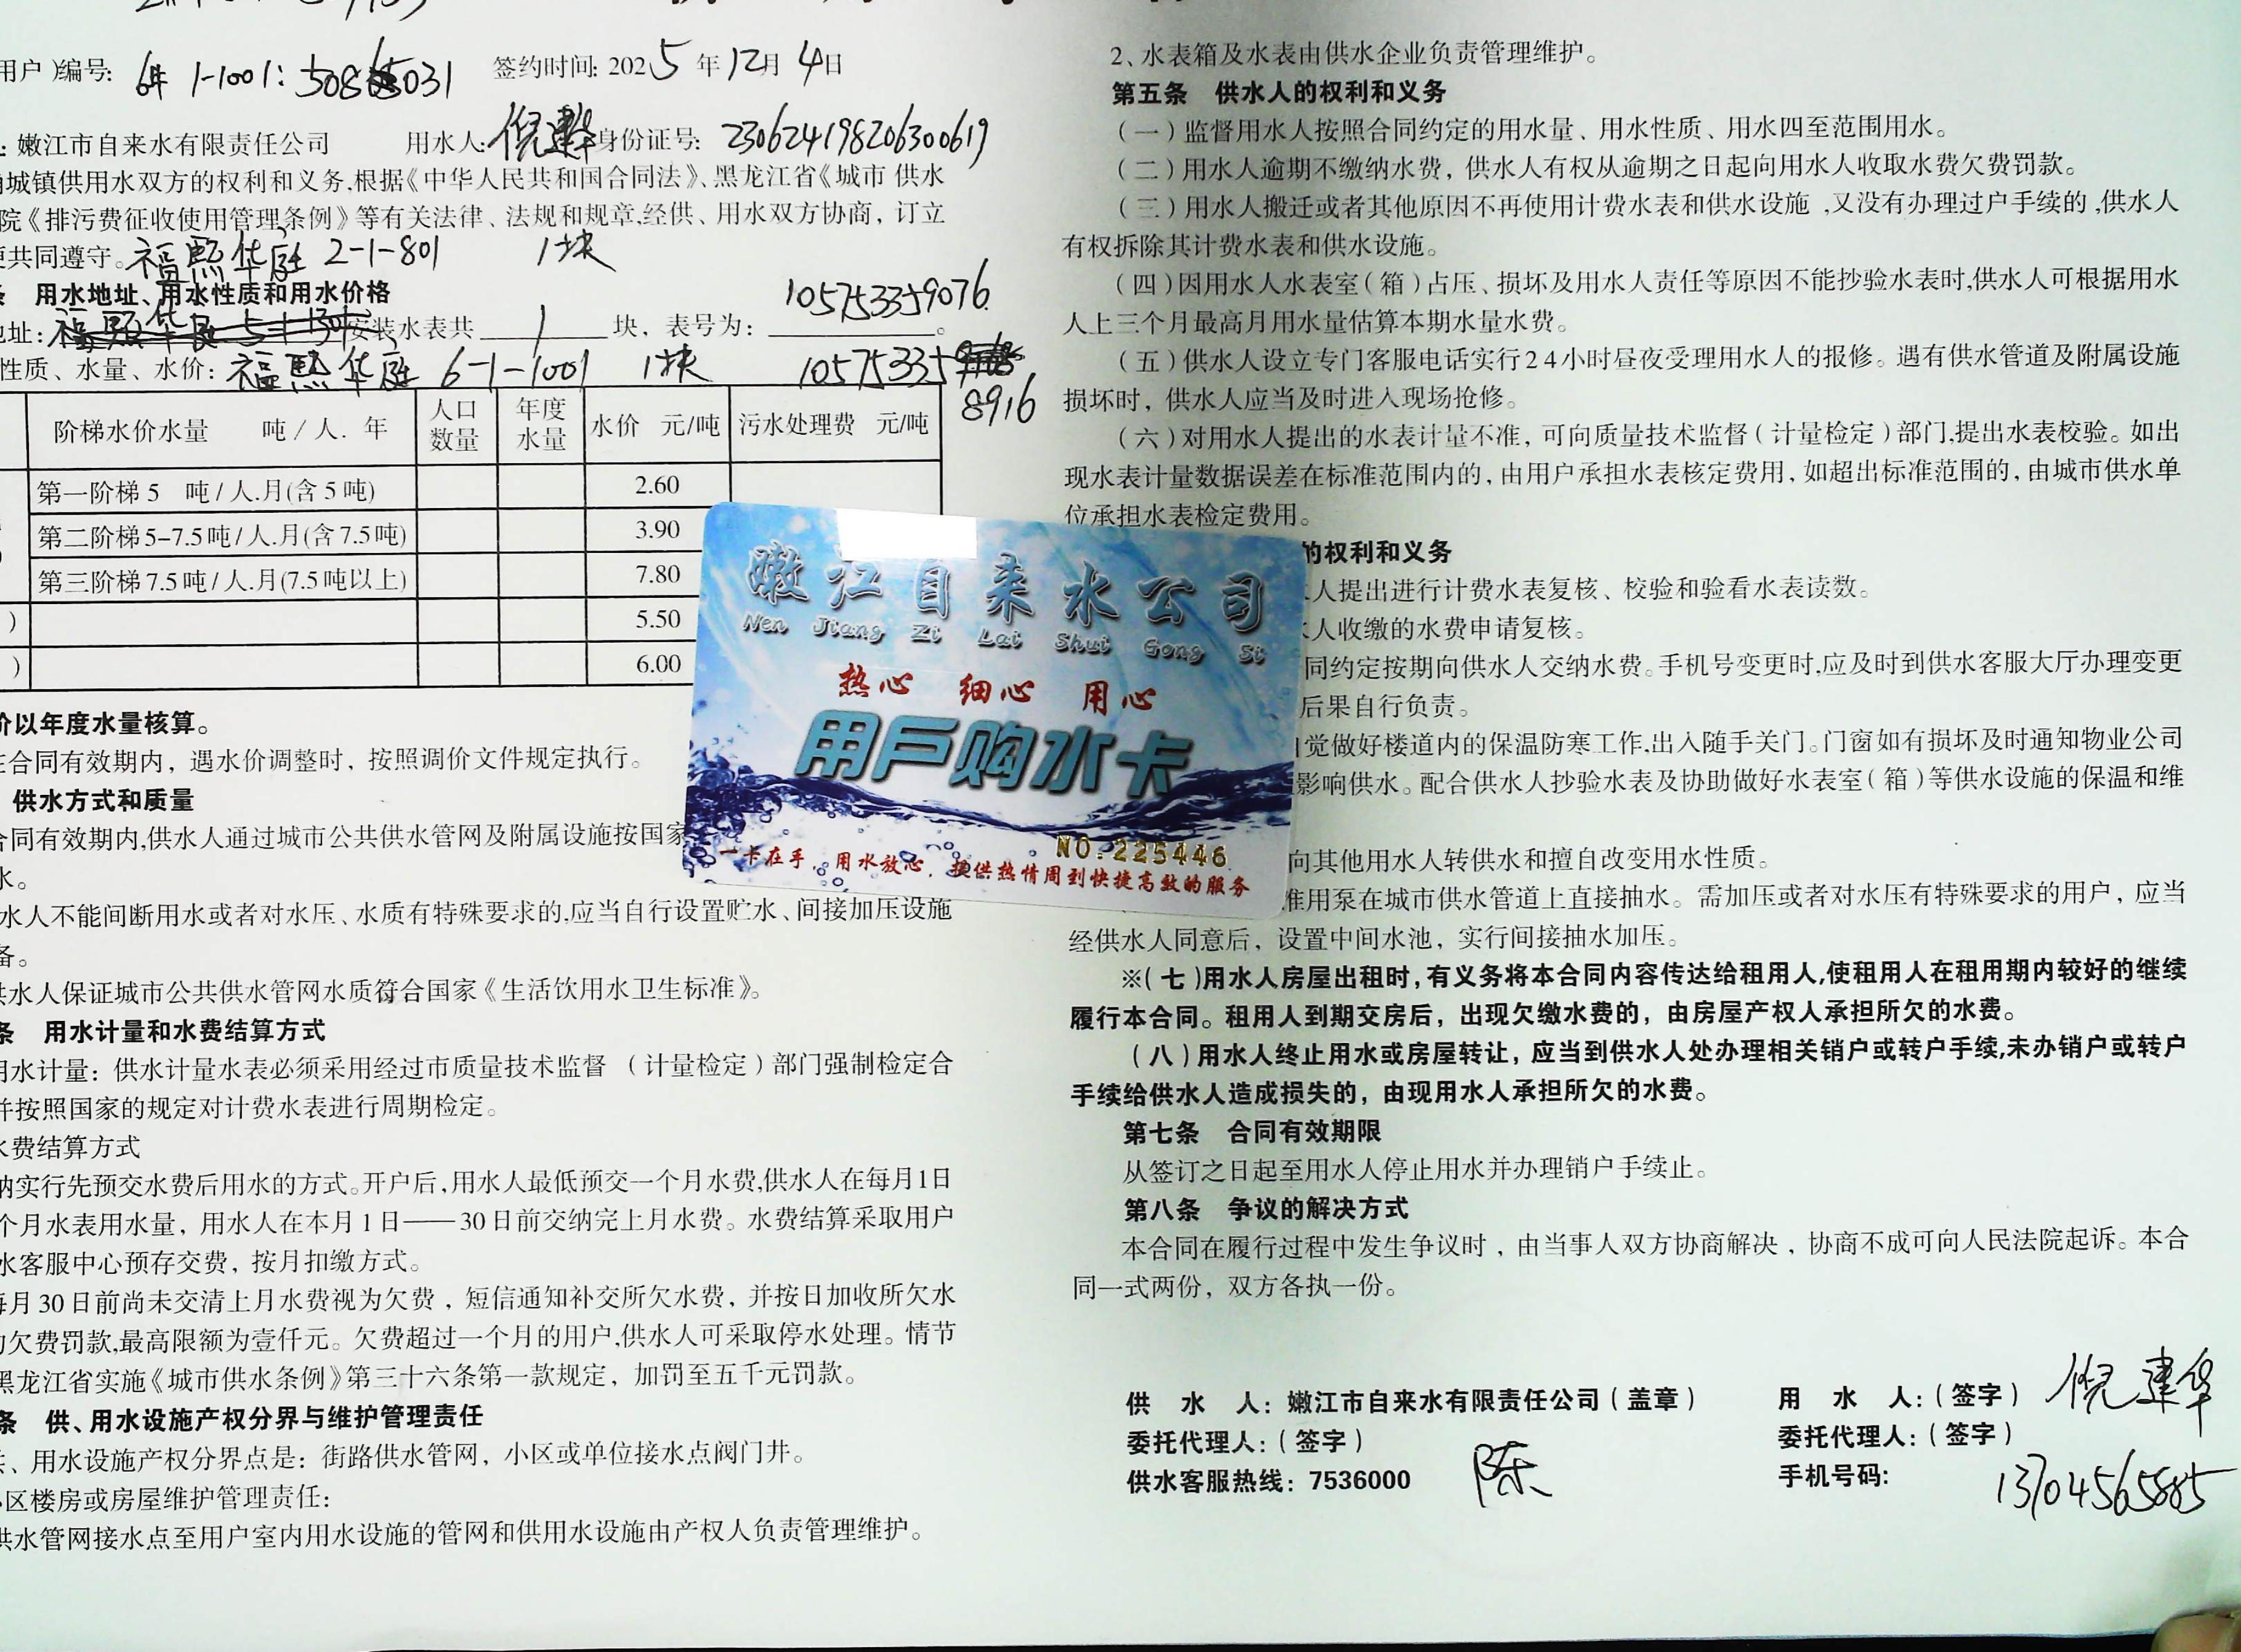 用户)编号: 6# 1-1001: 5031 签约时间: 2025年12月4日
: 嫩江市自来水有限责任公司 用水人: 倪建华 身份证号: 230624198206300619
城镇供用水双方的权利和义务,根据《中华人民共和国合同法》、黑龙江省《城市供水
院《排污费征收使用管理条例》等有关法律、法规和规章,经供、用水双方协商，订立
共同遵守。福熙华庭 2-1-801 1块
用水地址、用水性质和用水价格 105753359076
址: 安装水表共 1 块，表号为:
性质、水量、水价: 福熙华庭 6-1-1001 1块 10575335
8916
阶梯水价水量 吨/人.年 人口数量 年度水量 水价 元/吨 污水处理费 元/吨
第一阶梯5 吨/人.月(含5吨) 2.60
第二阶梯5-7.5吨/人.月(含7.5吨) 3.90
第三阶梯7.5吨/人.月(7.5吨以上) 7.80
) 5.50
) 6.00
价以年度水量核算。
在合同有效期内，遇水价调整时，按照调价文件规定执行。
供水方式和质量
合同有效期内,供水人通过城市公共供水管网及附属设施按国家
水。
水人不能间断用水或者对水压、水质有特殊要求的,应当自行设置贮水、间接加压设施
备。
供水人保证城市公共供水管网水质符合国家《生活饮用水卫生标准》。
条 用水计量和水费结算方式
用水计量：供水计量水表必须采用经过市质量技术监督（计量检定）部门强制检定合
并按照国家的规定对计费水表进行周期检定。
水费结算方式
纳实行先预交水费后用水的方式。开户后,用水人最低预交一个月水费,供水人在每月1日
个月水表用水量，用水人在本月1日——30日前交纳完上月水费。水费结算采取用户
水客服中心预存交费，按月扣缴方式。
每月30日前尚未交清上月水费视为欠费，短信通知补交所欠水费，并按日加收所欠水
的欠费罚款,最高限额为壹仟元。欠费超过一个月的用户,供水人可采取停水处理。情节
黑龙江省实施《城市供水条例》第三十六条第一款规定，加罚至五千元罚款。
条 供、用水设施产权分界与维护管理责任
、用水设施产权分界点是：街路供水管网，小区或单位接水点阀门井。
小区楼房或房屋维护管理责任：
供水管网接水点至用户室内用水设施的管网和供用水设施由产权人负责管理维护。
2、水表箱及水表由供水企业负责管理维护。
第五条 供水人的权利和义务
（一）监督用水人按照合同约定的用水量、用水性质、用水四至范围用水。
（二）用水人逾期不缴纳水费，供水人有权从逾期之日起向用水人收取水费欠费罚款。
（三）用水人搬迁或者其他原因不再使用计费水表和供水设施,又没有办理过户手续的,供水人
有权拆除其计费水表和供水设施。
（四）因用水人水表室（箱）占压、损坏及用水人责任等原因不能抄验水表时,供水人可根据用水
人上三个月最高月用水量估算本期水量水费。
（五）供水人设立专门客服电话实行24小时昼夜受理用水人的报修。遇有供水管道及附属设施
损坏时，供水人应当及时进入现场抢修。
（六）对用水人提出的水表计量不准，可向质量技术监督（计量检定）部门,提出水表校验。如出
现水表计量数据误差在标准范围内的，由用户承担水表核定费用，如超出标准范围的，由城市供水单
位承担水表检定费用。
的权利和义务
人提出进行计费水表复核、校验和验看水表读数。
水人收缴的水费申请复核。
同约定按期向供水人交纳水费。手机号变更时,应及时到供水客服大厅办理变更
后果自行负责。
觉做好楼道内的保温防寒工作,出入随手关门。门窗如有损坏及时通知物业公司
影响供水。配合供水人抄验水表及协助做好水表室（箱）等供水设施的保温和维
向其他用水人转供水和擅自改变用水性质。
准用泵在城市供水管道上直接抽水。需加压或者对水压有特殊要求的用户，应当
经供水人同意后，设置中间水池，实行间接抽水加压。
※（七）用水人房屋出租时,有义务将本合同内容传达给租用人,使租用人在租用期内较好的继续
履行本合同。租用人到期交房后，出现欠缴水费的，由房屋产权人承担所欠的水费。
（八）用水人终止用水或房屋转让，应当到供水人处办理相关销户或转户手续,未办销户或转户
手续给供水人造成损失的，由现用水人承担所欠的水费。
第七条 合同有效期限
从签订之日起至用水人停止用水并办理销户手续止。
第八条 争议的解决方式
本合同在履行过程中发生争议时，由当事人双方协商解决，协商不成可向人民法院起诉。本合
同一式两份，双方各执一份。
供 水 人：嫩江市自来水有限责任公司（盖章） 用 水 人:（签字）倪建华
委托代理人:（签字）陈 委托代理人:（签字）
供水客服热线：7536000 手机号码: 13704565885
嫩江自来水公司
Nen Jiang Zi Lai Shui Gong Si
热心 细心 用心
用户购水卡
NO.225446
一卡在手，用水放心，提供热情周到快捷高效的服务